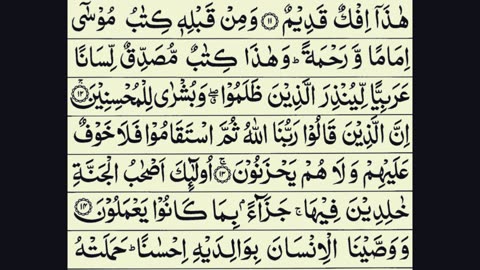 هٰذَاۤ اِفْكٌ قَدِیْمٌ ۝۱۱ وَمِنْ قَبْلِهٖ كِتٰبُ مُوْسٰۤى
اِمَامًا وَّ رَحْمَةً ؕ وَهٰذَا كِتٰبٌ مُّصَدِّقٌ لِّسَانًا
عَرَبِیًّا لِّیُنْذِرَ الَّذِیْنَ ظَلَمُوْا ۖۗ وَبُشْرٰى لِلْمُحْسِنِیْنَ ۝۱۲
اِنَّ الَّذِیْنَ قَالُوْا رَبُّنَا اللّٰهُ ثُمَّ اسْتَقَامُوْا فَلَا خَوْفٌ
عَلَیْهِمْ وَلَا هُمْ یَحْزَنُوْنَ ۝۱۳ۚ اُولٰٓئِكَ اَصْحٰبُ الْجَنَّةِ
خٰلِدِیْنَ فِیْهَا ۚ جَزَآءًۢ بِمَا كَانُوْا یَعْمَلُوْنَ ۝۱۴
وَوَصَّیْنَا الْاِنْسَانَ بِوَالِدَیْهِ اِحْسٰنًا ؕ حَمَلَتْهُ